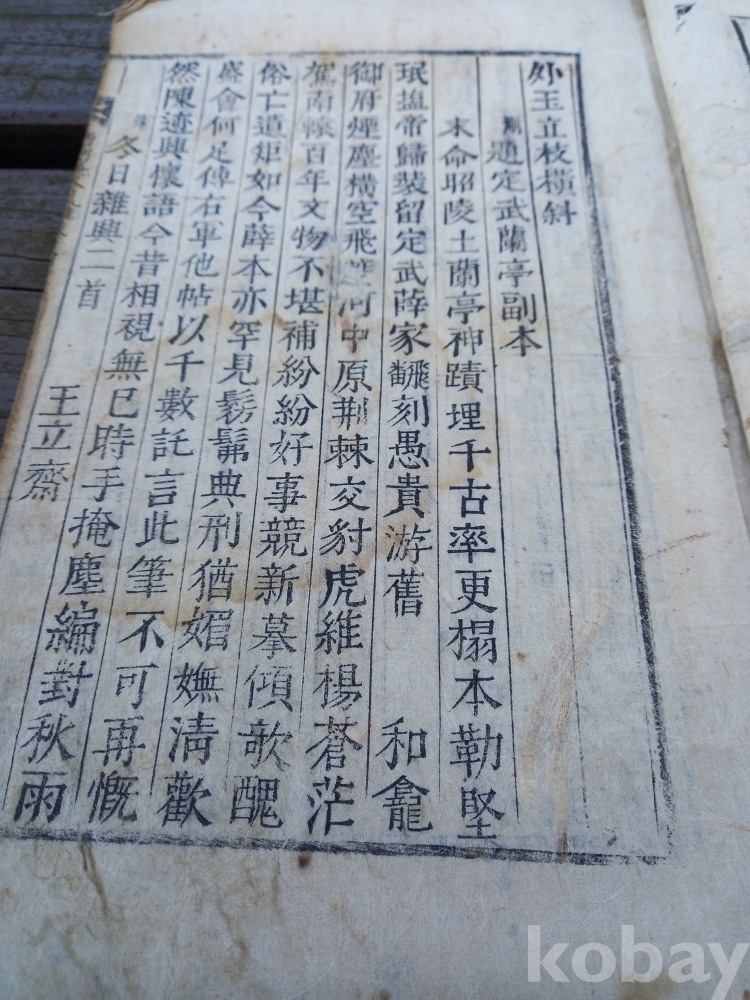 外玉立枝橫斜
題定武蘭亭副本
末命昭陵土蘭亭神蹟埋千古率更搨本勒堅
珉搵帝歸裝留定武薛家飜刻愚貴游舊 和龕
御府煙塵橫空飛河中原荊棘交豺虎維楊蒼茫
駕南轅百年文物不堪補紛紛好事競新摹傾欹醜
俗亡遺矩如今薛本亦罕見髣髴典刑猶媚嫵清歡
盛會何足傳右軍他帖以千數託言此筆不可再慨
然陳迹興懷語今昔相視無已時手掩塵編對秋雨
冬日雜興二首 王立齋
kobay